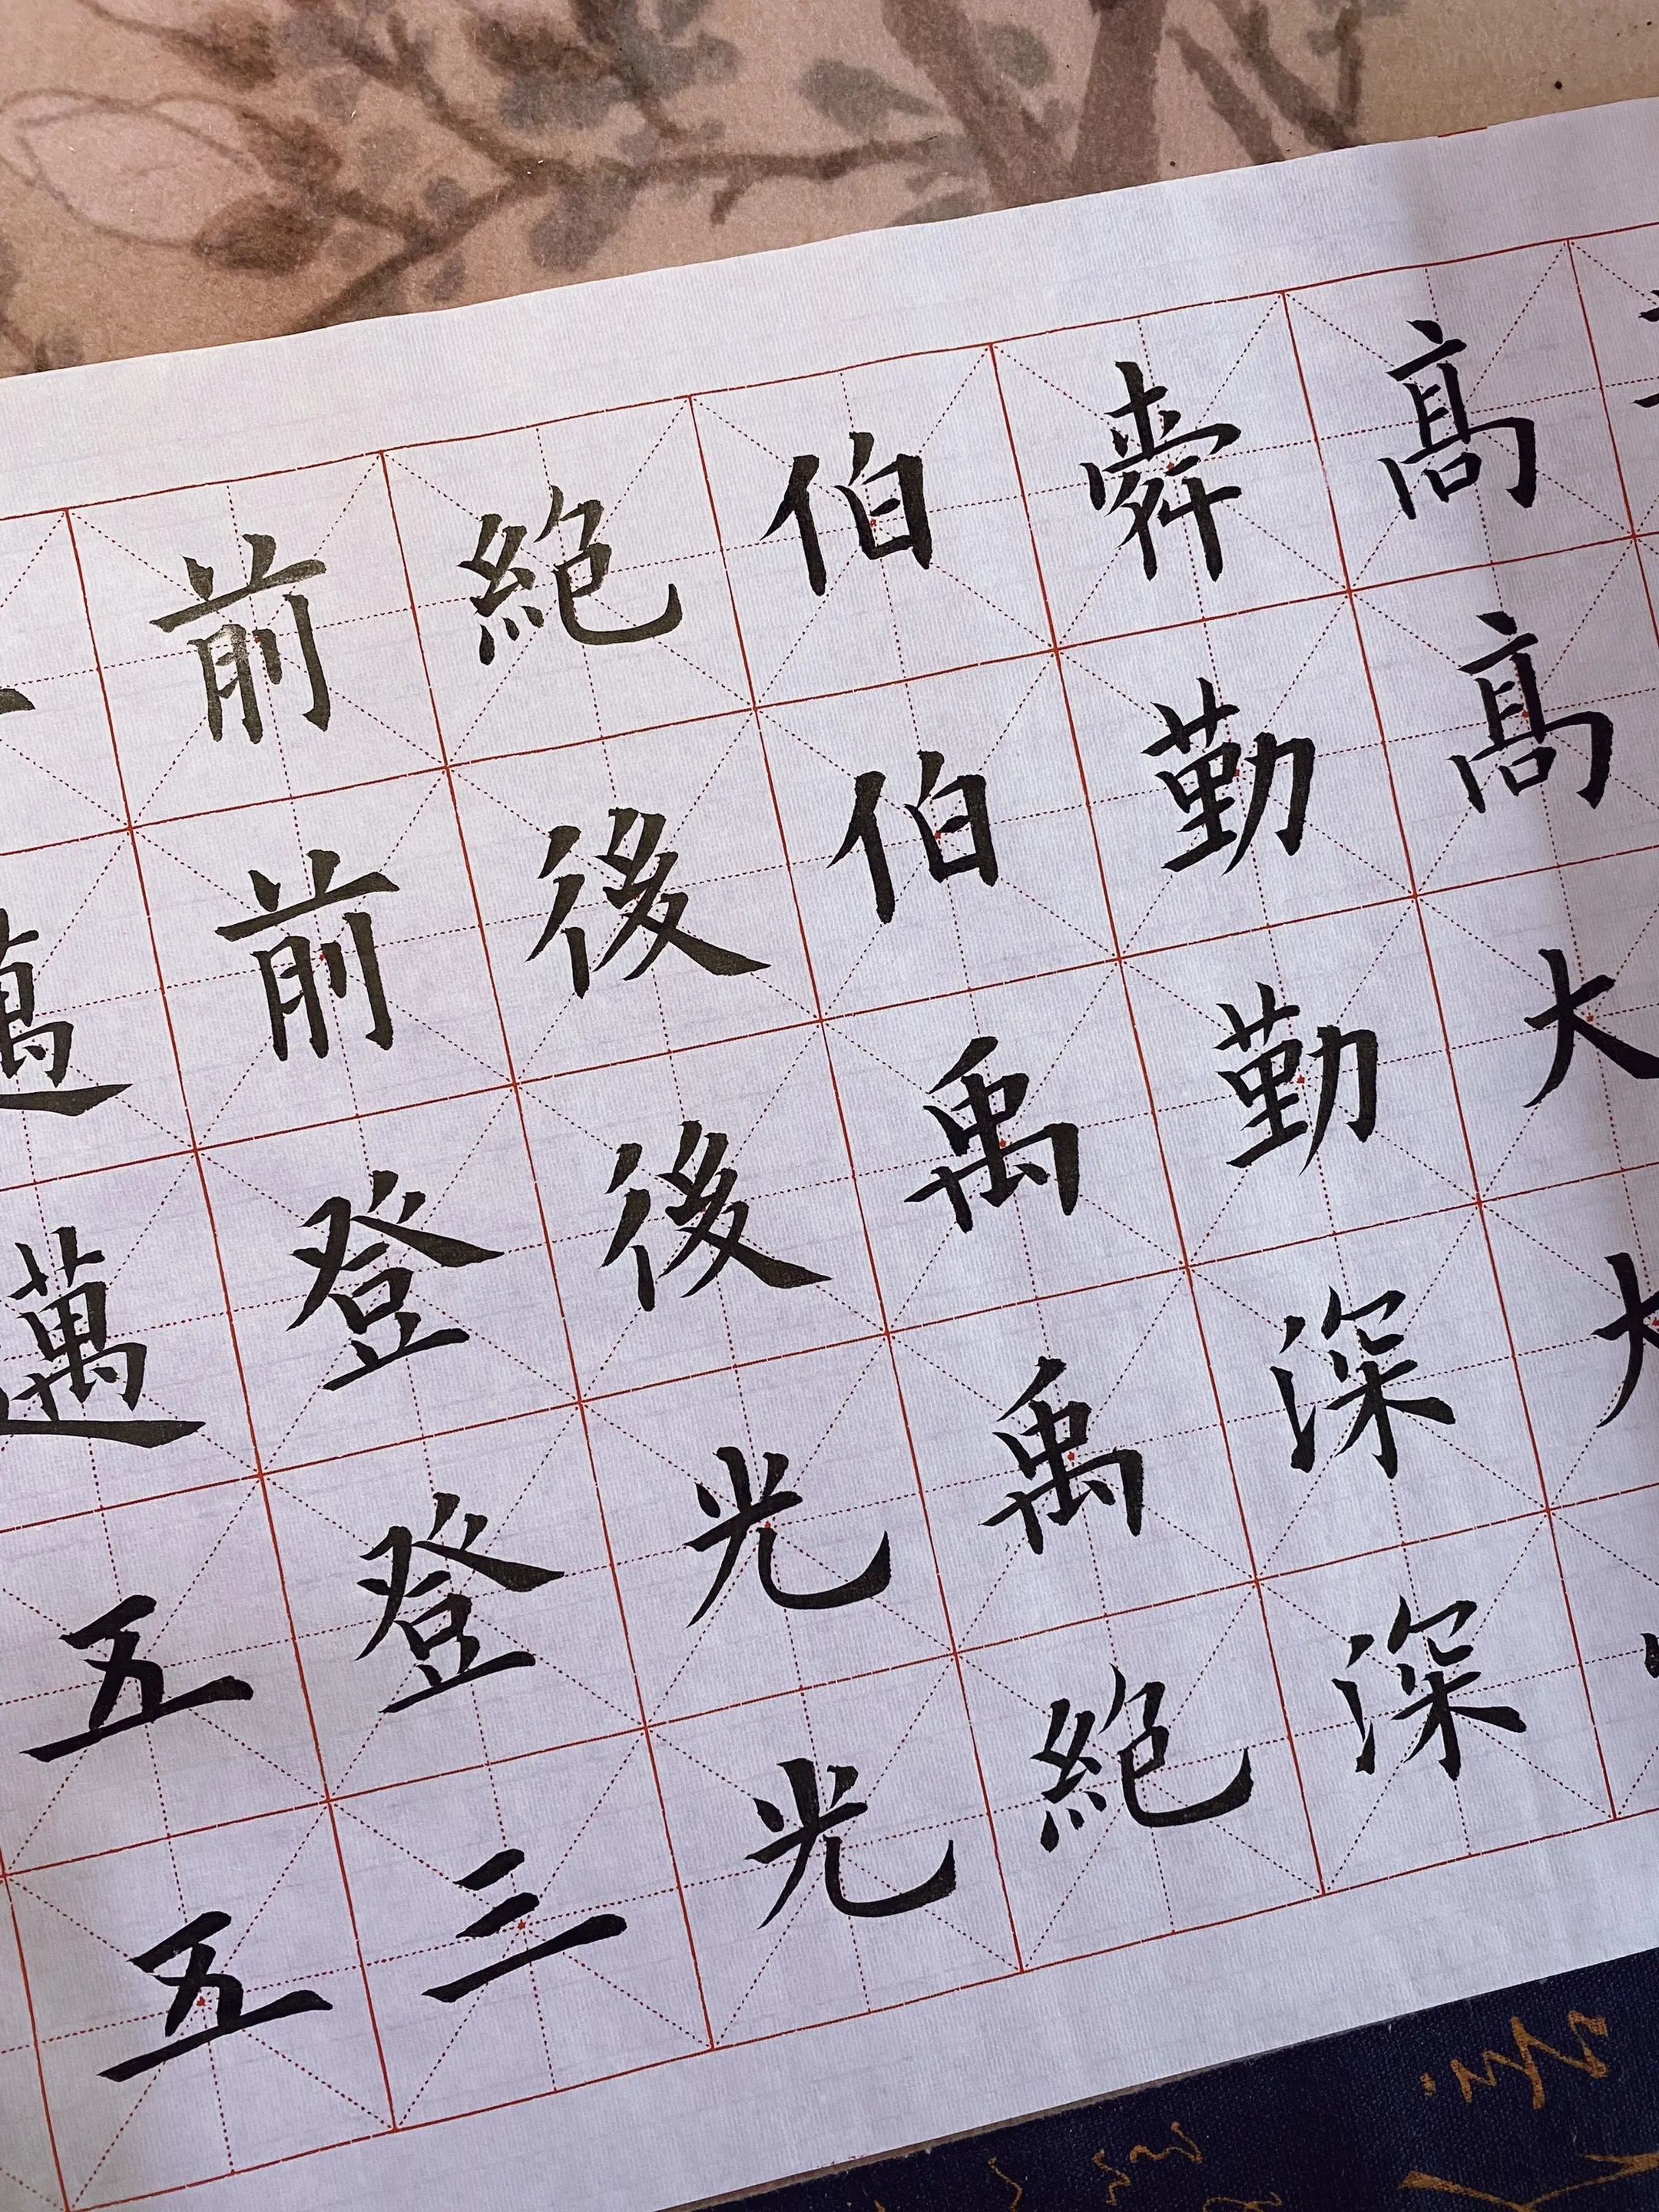 高高大大
舜勤勤深深
伯伯禹禹絶
絶後後光光
前前登登三
邁邁五五